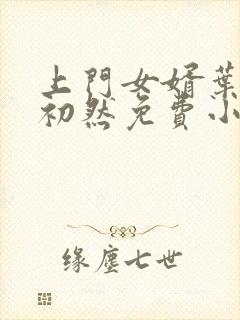 上門女婿葉
初然免費小
缘塵七世